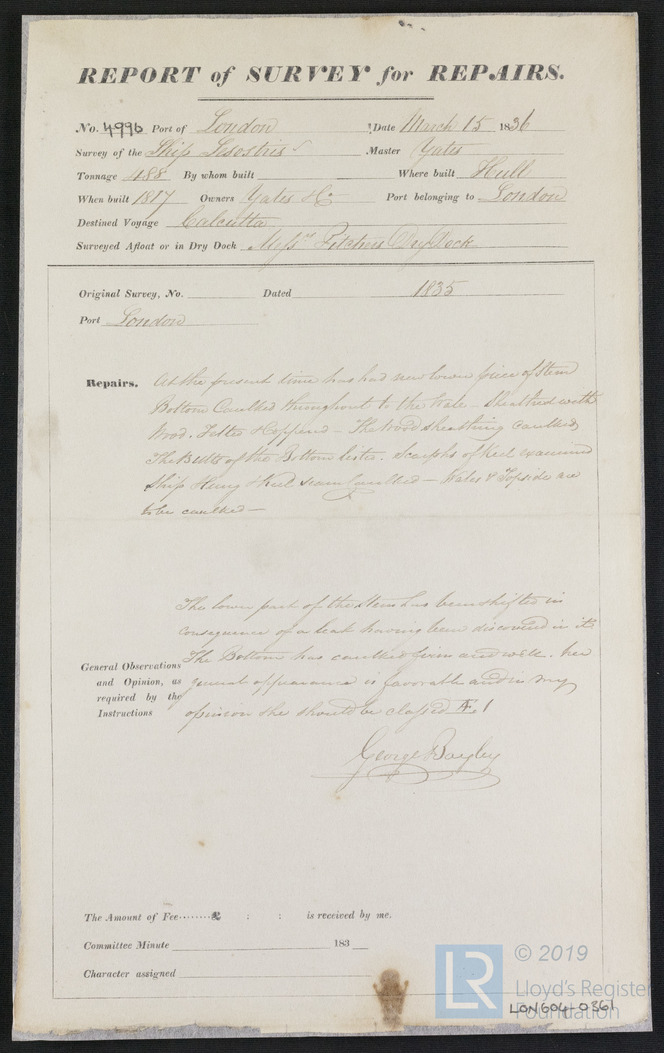 REPORT of SURVEY for REPAIRS.
No. 4996 Port of London Date March 15 1836
Survey of the Ship Sesostris Master Yates
Tonnage 488 By whom built Where built Hull
When built 1817 Owners Yates & Co Port belonging to London
Destined Voyage Calcutta
Surveyed Afloat or in Dry Dock Messrs Pitchers Dry Dock
Original Survey, No. Dated 1835
Port London
Repairs. At the present time has had new lower piece of Stem
Bottom Caulked throughout to the Wale - Sheathed with
Wood, Felted & Coppered - The Wood sheathing caulked
The Butts of the Bottom . Scarphs of Keel examined
Ship Hung & Keel seam Caulked - Wales & Topsides are
to be caulked -
The lower part of the Stem has been shifted in
consequence of a leak having been discovered in it
The Bottom has caulked firm and well. her
General Observations
and Opinion, as general appearance is favorable and in my
required by the
Instructions opinion she should be classed Æ 1
George Bayley
The Amount of Fee ........£ : : is received by me.
Committee Minute 183
Character assigned
LR © 2019
Lloyd's Register
Foundation
LON604-0361